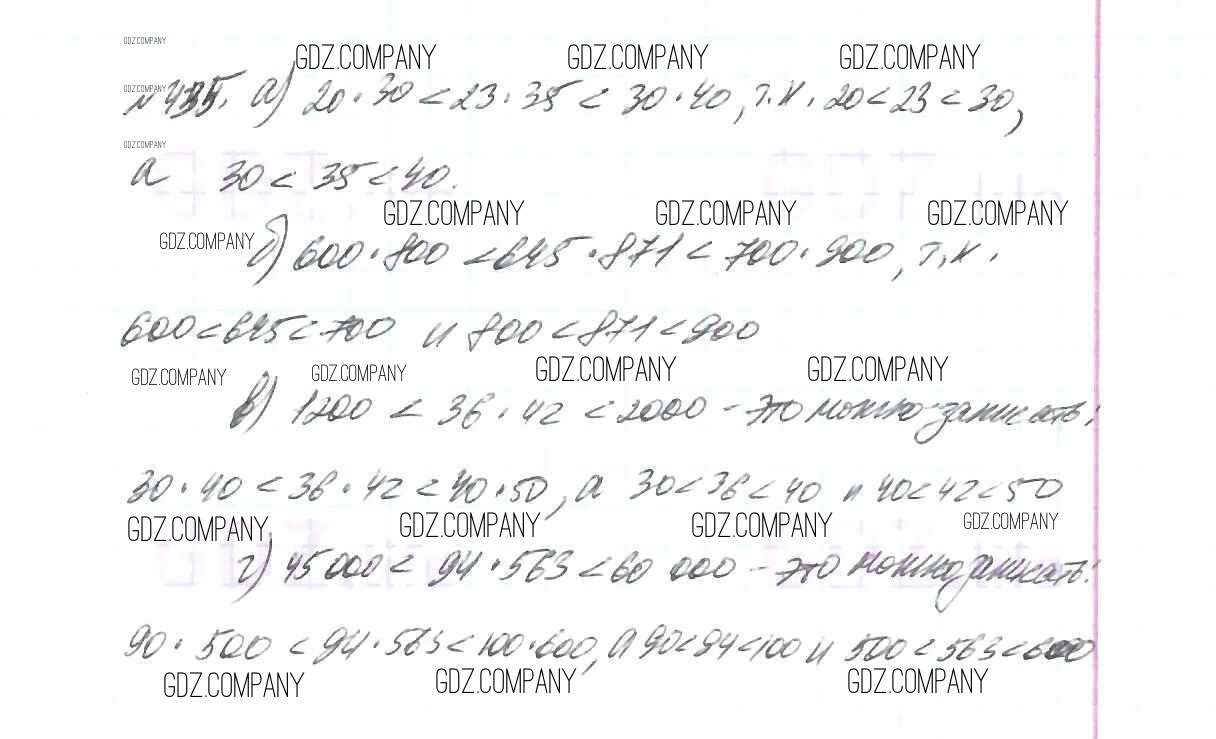 GDZ.COMPANY
GDZ.COMPANY GDZ.COMPANY GDZ.COMPANY
GDZ.COMPANY
№435. а) 20·30<23·35<30·40, т.к. 20<23<30,
GDZ.COMPANY
а 30<35<40.
GDZ.COMPANY GDZ.COMPANY GDZ.COMPANY
GDZ.COMPANY
б) 600·800<645·871<700·900, т.к.
600<645<700 и 800<871<900
GDZ.COMPANY GDZ.COMPANY GDZ.COMPANY GDZ.COMPANY
в) 1200<36·42<2000 - это можно записать:
30·40<36·42<40·50, а 30<36<40 и 40<42<50
GDZ.COMPANY GDZ.COMPANY GDZ.COMPANY GDZ.COMPANY
г) 45000<94·563<60 000 - это можно записать:
90·500<94·563<100·600, а 90<94<100 и 500<563<600
GDZ.COMPANY GDZ.COMPANY GDZ.COMPANY